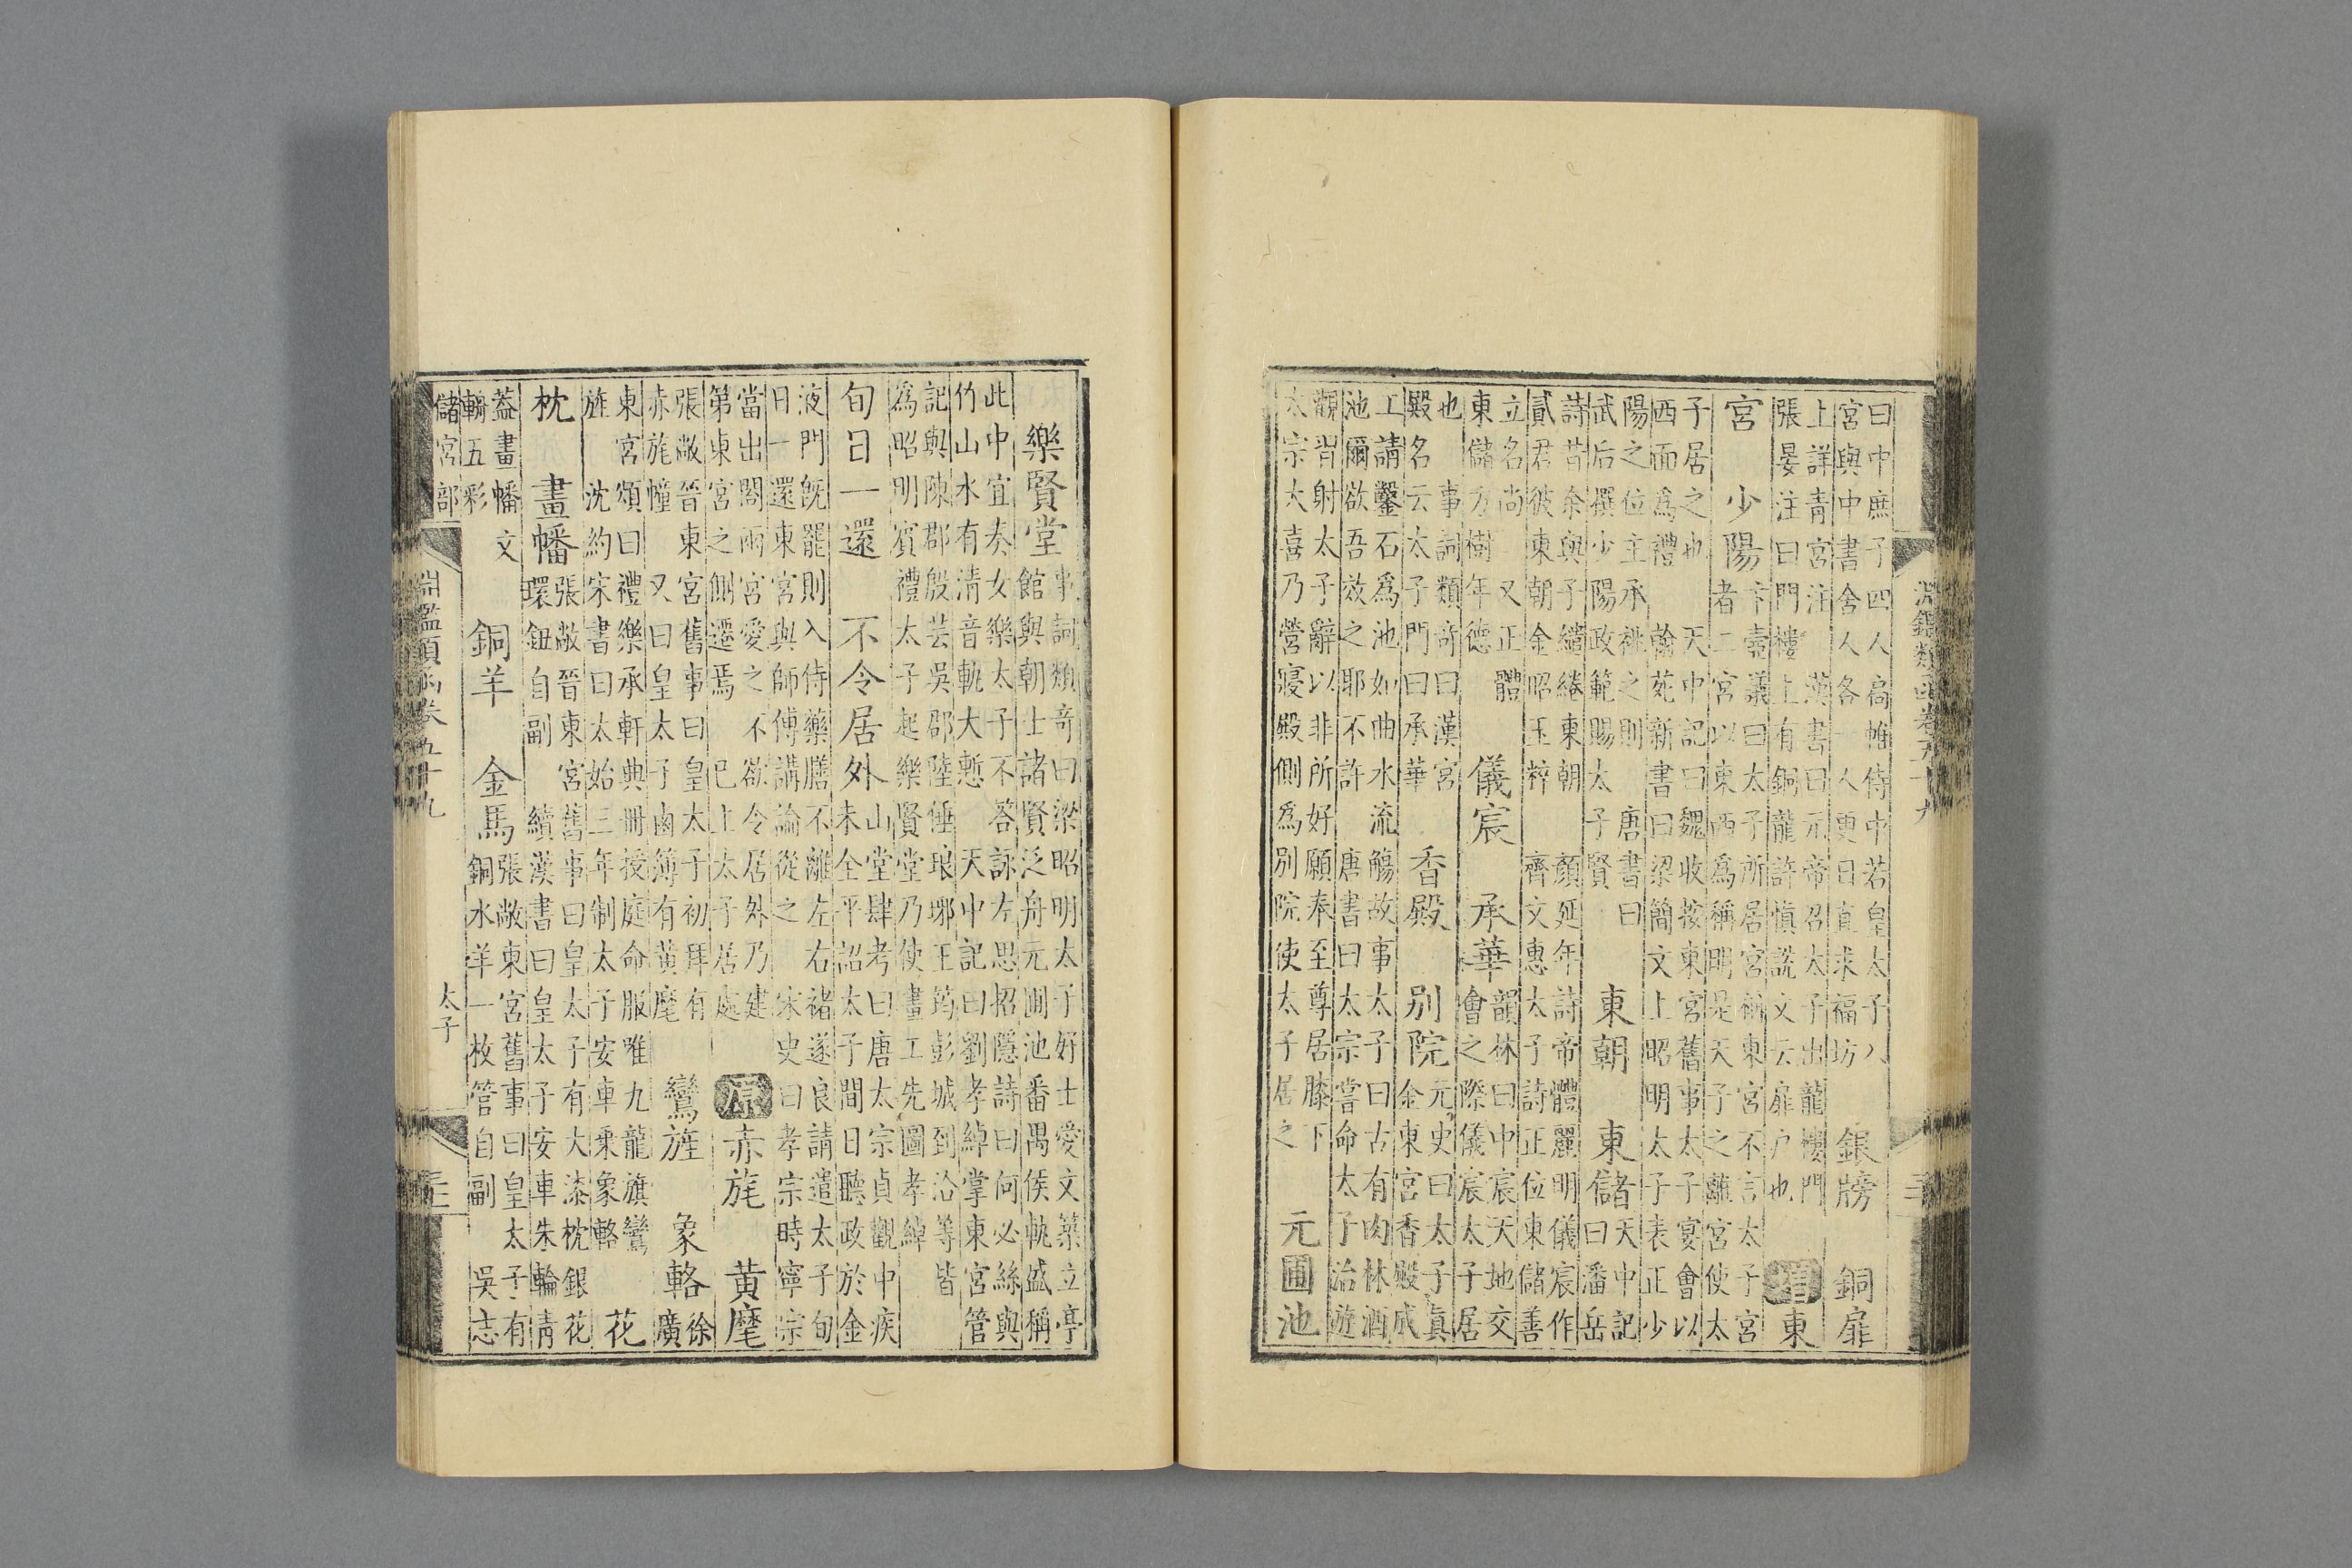 淵鑑類函卷五十九
曰中庶子四人高帷侍中若皇太子八宮與中書舍人各一人更日直求福坊 銀牓 銅扉
上詳青宮注 漢書曰元帝召太子出龍樓門張晏注曰門樓上有銅龍許慎說文云扉户也 增 東
宮 少陽 卞壼議曰太子所居宮稱東宮不言太子宮者二宮以東西為稱明是天子之離宮使太
子居之也 天中記曰魏收按東宮舊事太子宴會以西面為禮 翰苑新書曰梁簡文上昭明太子表正少
陽之位主承祧之則 唐書曰武后撰少陽政範賜太子賢 東朝 東儲 天中記曰潘岳
詩昔余與子繾綣東朝 顏延年詩帝體麗明儀宸作貳君彼東朝金昭玉粹 齊文惠太子詩正位東儲善
立名尚 又正體東儲方樹年德 儀宸 承華 韻林曰中宸天地交會之際儀宸太子居
也 事詞類奇曰漢宮殿名云太子門曰承華 香殿 別院 元史曰太子真金東宮香殿成
工請鑿石為池如曲水流觴故事太子曰古有肉林酒池爾欲吾效之耶不許 唐書曰太宗嘗命太子治遊
觀習射太子辭以非所好願奉至尊居膝下太宗大喜乃營寢殿側為別院使太子居之 元圃池
樂賢堂 事詞類奇曰梁昭明太子好士愛文築立亭館與朝士諸賢泛舟元圃池番禺侯軌盛稱
此中宜奏女樂太子不荅詠左思招隱詩曰何必絲與竹山水有清音軌大慙 天中記曰劉孝綽掌東宮管
記與陳郡殷芸吳郡陸倕琅琊王筠彭城到洽等皆為昭明賓禮太子起樂賢堂乃使畫工先圖孝綽
旬日一還 不令居外 山堂肆考曰唐太宗貞觀中疾未全平詔太子間日聽政於金
液門既罷則入侍藥膳不離左右褚遂良請遣太子旬日一還東宮與師傅講論從之 宋史曰孝宗時寧宗
當出閤兩宮愛之不欲令居外乃建第東宮之側遷焉 已上太子居處 原 赤旄 黃麾
張敞晉東宮舊事曰皇太子初拜有赤旄幢 又曰皇太子鹵簿有黃麾 鸞旌 象輅 徐廣
東宮頌曰禮樂承軒典冊授庭命服唯九龍旗鸞旌 沈約宋書曰太始三年制太子安車乘象輅 花
枕 畫幡 張敞晉東宮舊事曰皇太子有大漆枕銀花環鈕自副 續漢書曰皇太子安車朱輪青
蓋畫幡文輈五彩 銅羊 金馬 張敞東宮舊事曰皇太子有銅水羊一枚管自副 吳志
儲宮部
淵鑑類函卷五十九 太子